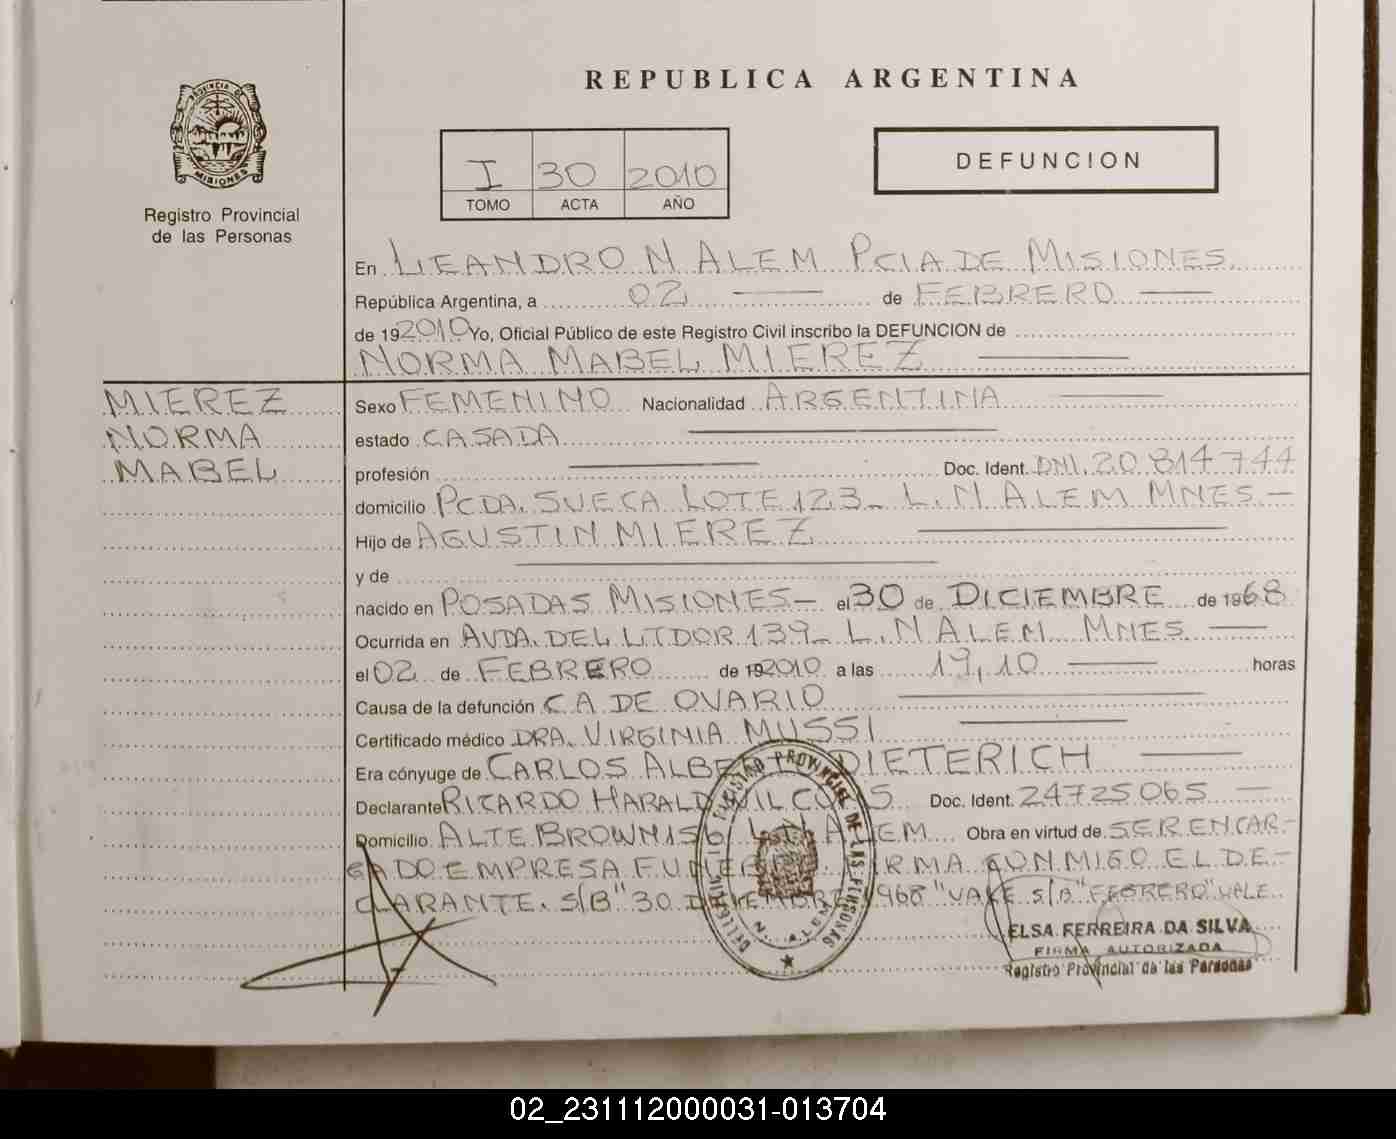 PROVINCIA DE
MISIONES
Registro Provincial
de las Personas
REPUBLICA ARGENTINA
I 30 2010
TOMO ACTA AÑO
DEFUNCION
En LEANDRO N ALEM PCIA DE MISIONES
República Argentina, a 02 de FEBRERO
de 192010 Yo, Oficial Público de este Registro Civil inscribo la DEFUNCION de
NORMA MABEL MIEREZ
MIEREZ
NORMA
MABEL
Sexo FEMENINO Nacionalidad ARGENTINA
estado CASADA
profesión Doc. Ident. DNI. 20 814 744
domicilio PCDA. SUECA LOTE 123 - L. N ALEM MNES -
Hijo de AGUSTIN MIEREZ
y de
nacido en POSADAS MISIONES - el 30 de DICIEMBRE de 1968
Ocurrida en AVDA. DEL LTDOR 139 - L. N ALEM MNES
el 02 de FEBRERO de 192010 a las 19,10 horas
Causa de la defunción CA DE OVARIO
Certificado médico DRA. VIRGINIA MUSSI
Era cónyuge de CARLOS ALBE DIETERICH
Declarante RICARDO HARALD Doc. Ident. 24725065
Domicilio ALTE BROWN 156 L. N ALEM Obra en virtud de SER ENCAR-
GADO EMPRESA FUNEB RMA CONMIGO EL DE-
CLARANTE. S/B "30 DICIEMBRE 1968" VALE S/B "FEBRERO" VALE
REGISTRO PROVINCIAL DE LAS PERSONAS
N. ALEM
ELSA FERREIRA DA SILVA
FIRMA AUTORIZADA
Registro Provincial de las Personas
02_231112000031-013704